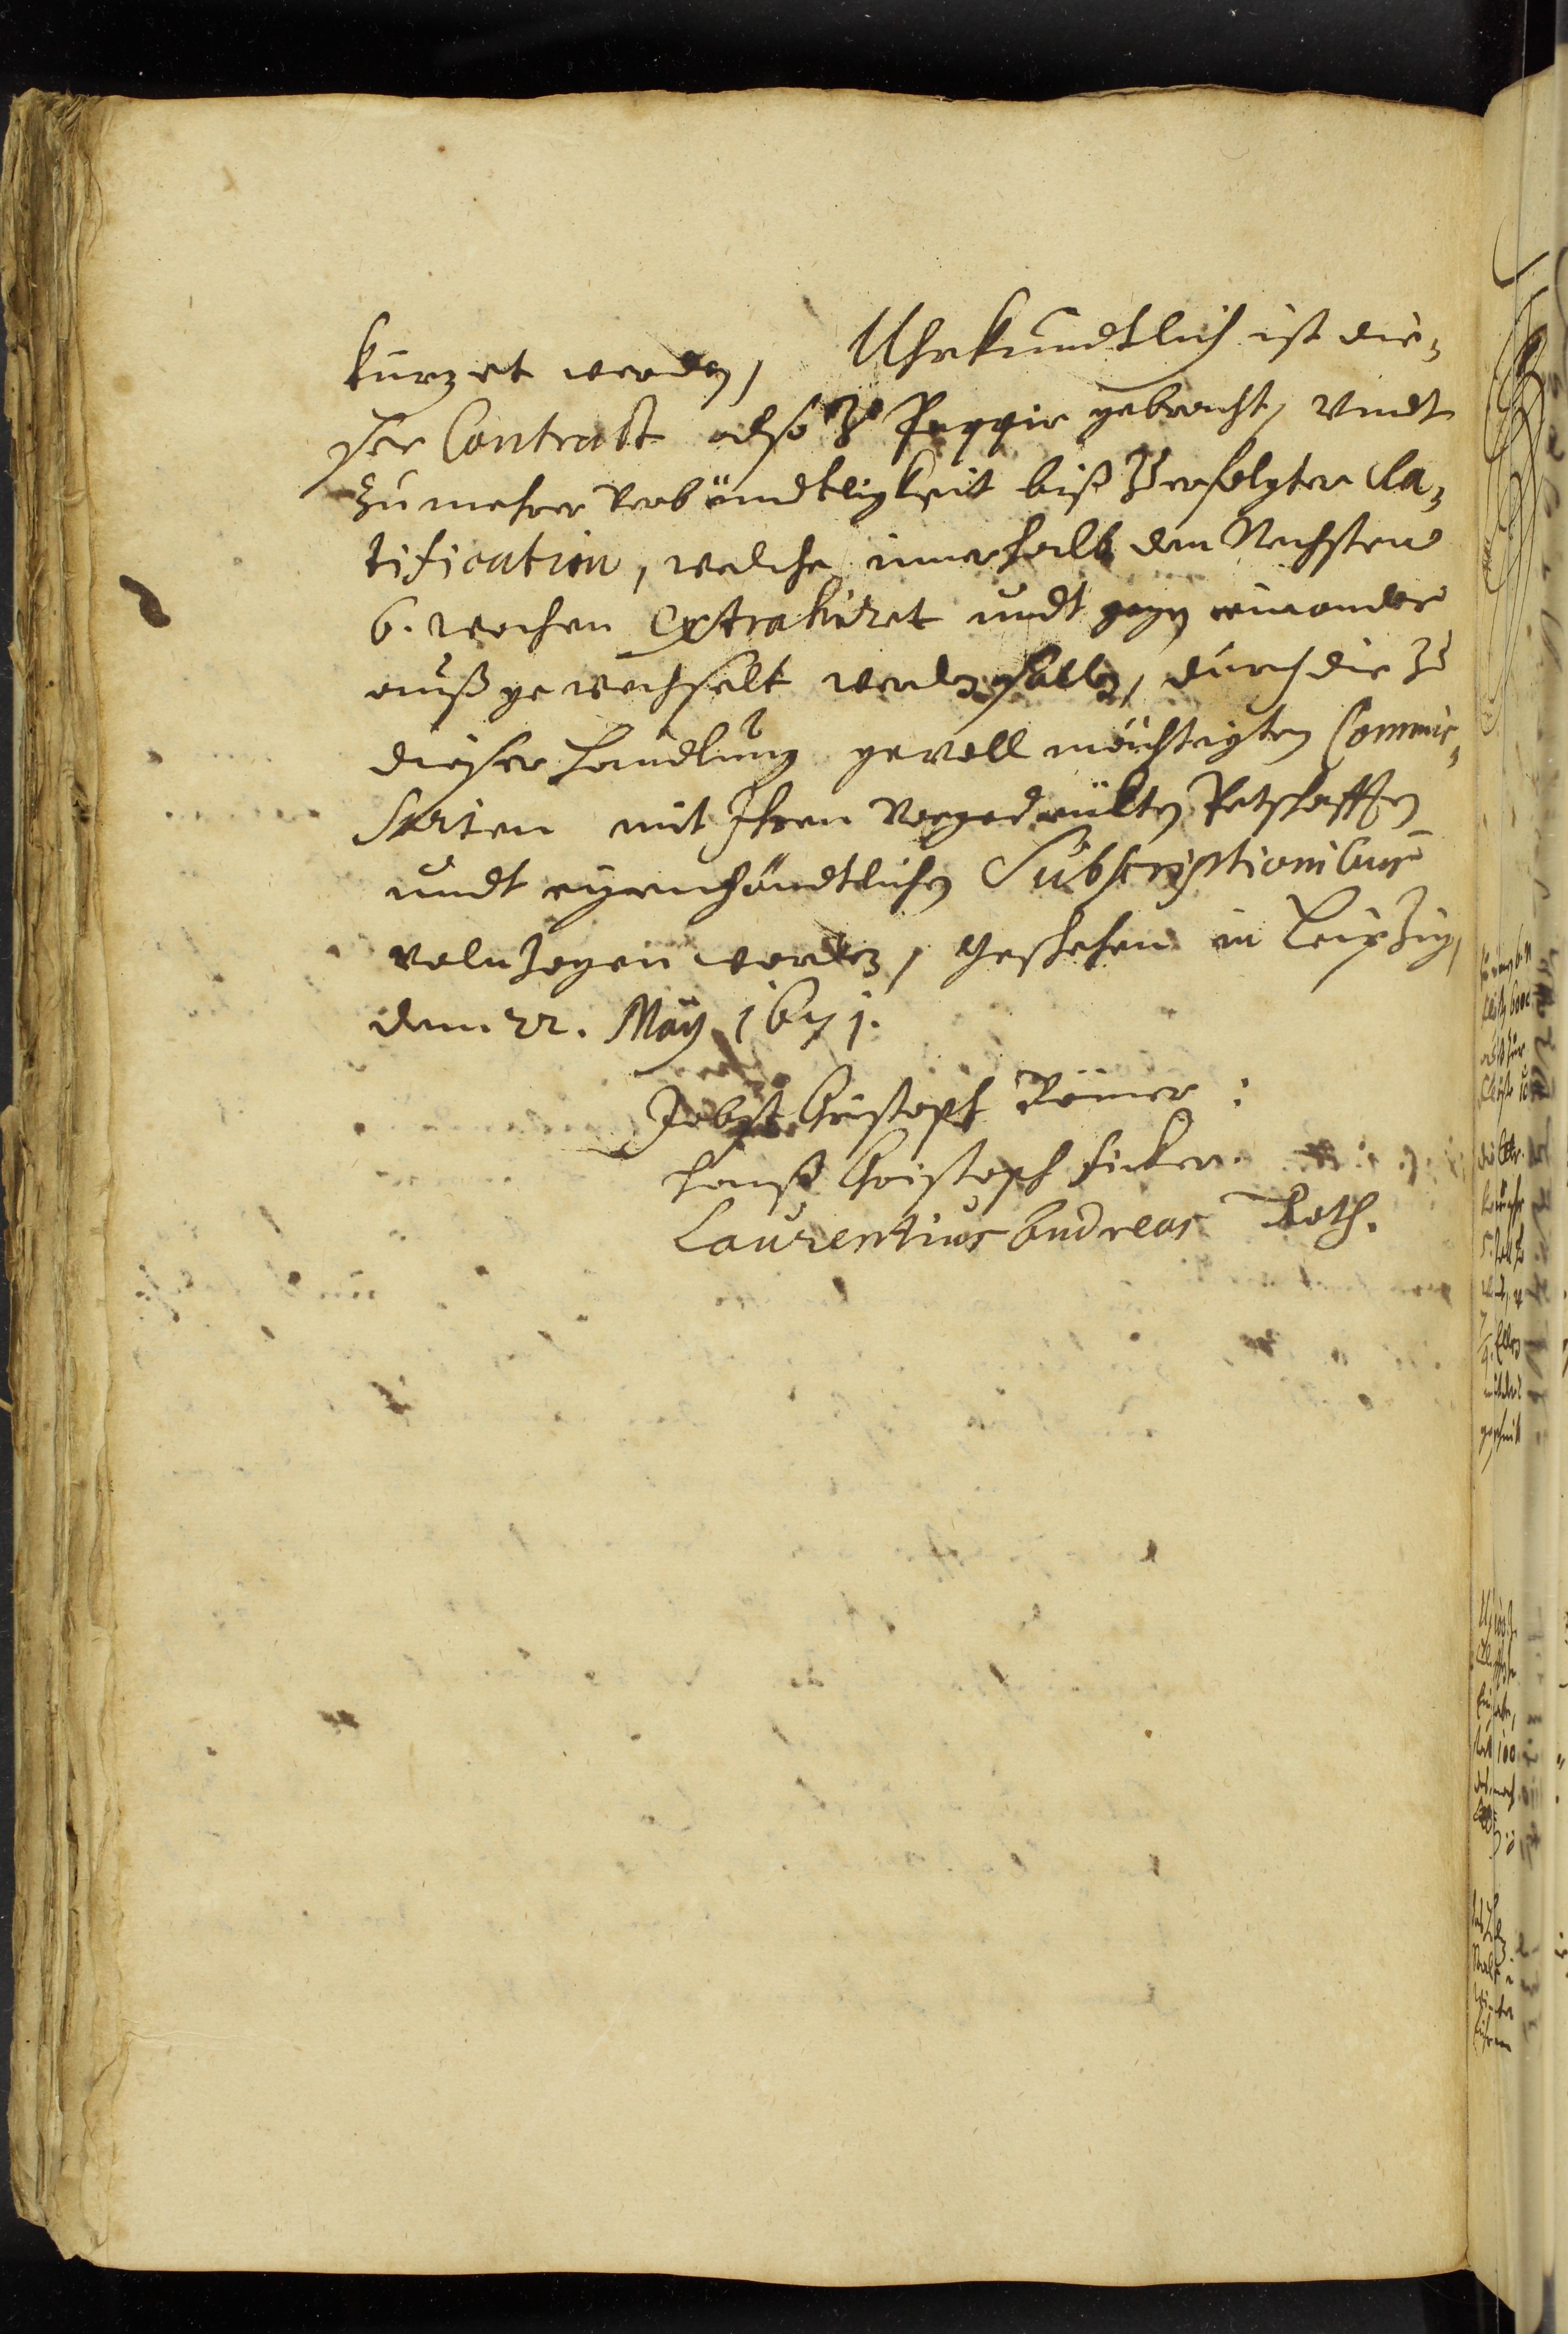 kürzet werden, Uhrkundtlich ist die-
ser Contract also zu Pappir gebracht, Vndt
zu mehrer Verbündtligkeit biß zu erfolgter Ra-
tification, welche innerhalb den Nechsten
6. wochen Extrahiret undt gegen einander
außgewechselt werden sollen, durch die zu
dieser Handlung gevollmächtigten Commis-
sarien mit Ihren Vorgedrückten Petschafften
undt eigenhändtlichen Subscriptionibus
volnzogen worden, Geschehen in Leipzig,
dem 22. Maÿ 1671.
Jobst Christoph Römer:
Hanß Christoph Ficker.
Laurentius Andreas Roth.